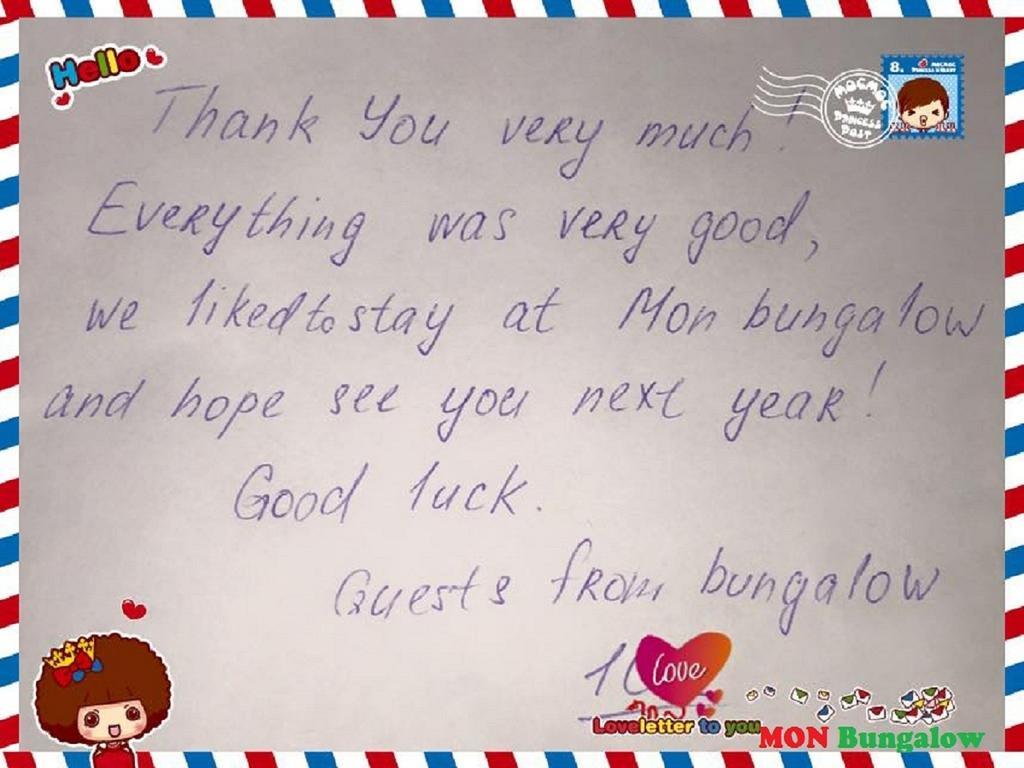 Hello
8.
MOCMOC
PRINCESS POST
Thank You very much!
Everything was very good,
we liked to stay at Mon bungalow
and hope see you next year!
Good luck.
Guests from bungalow
Love
Loveletter to you
MON Bungalow